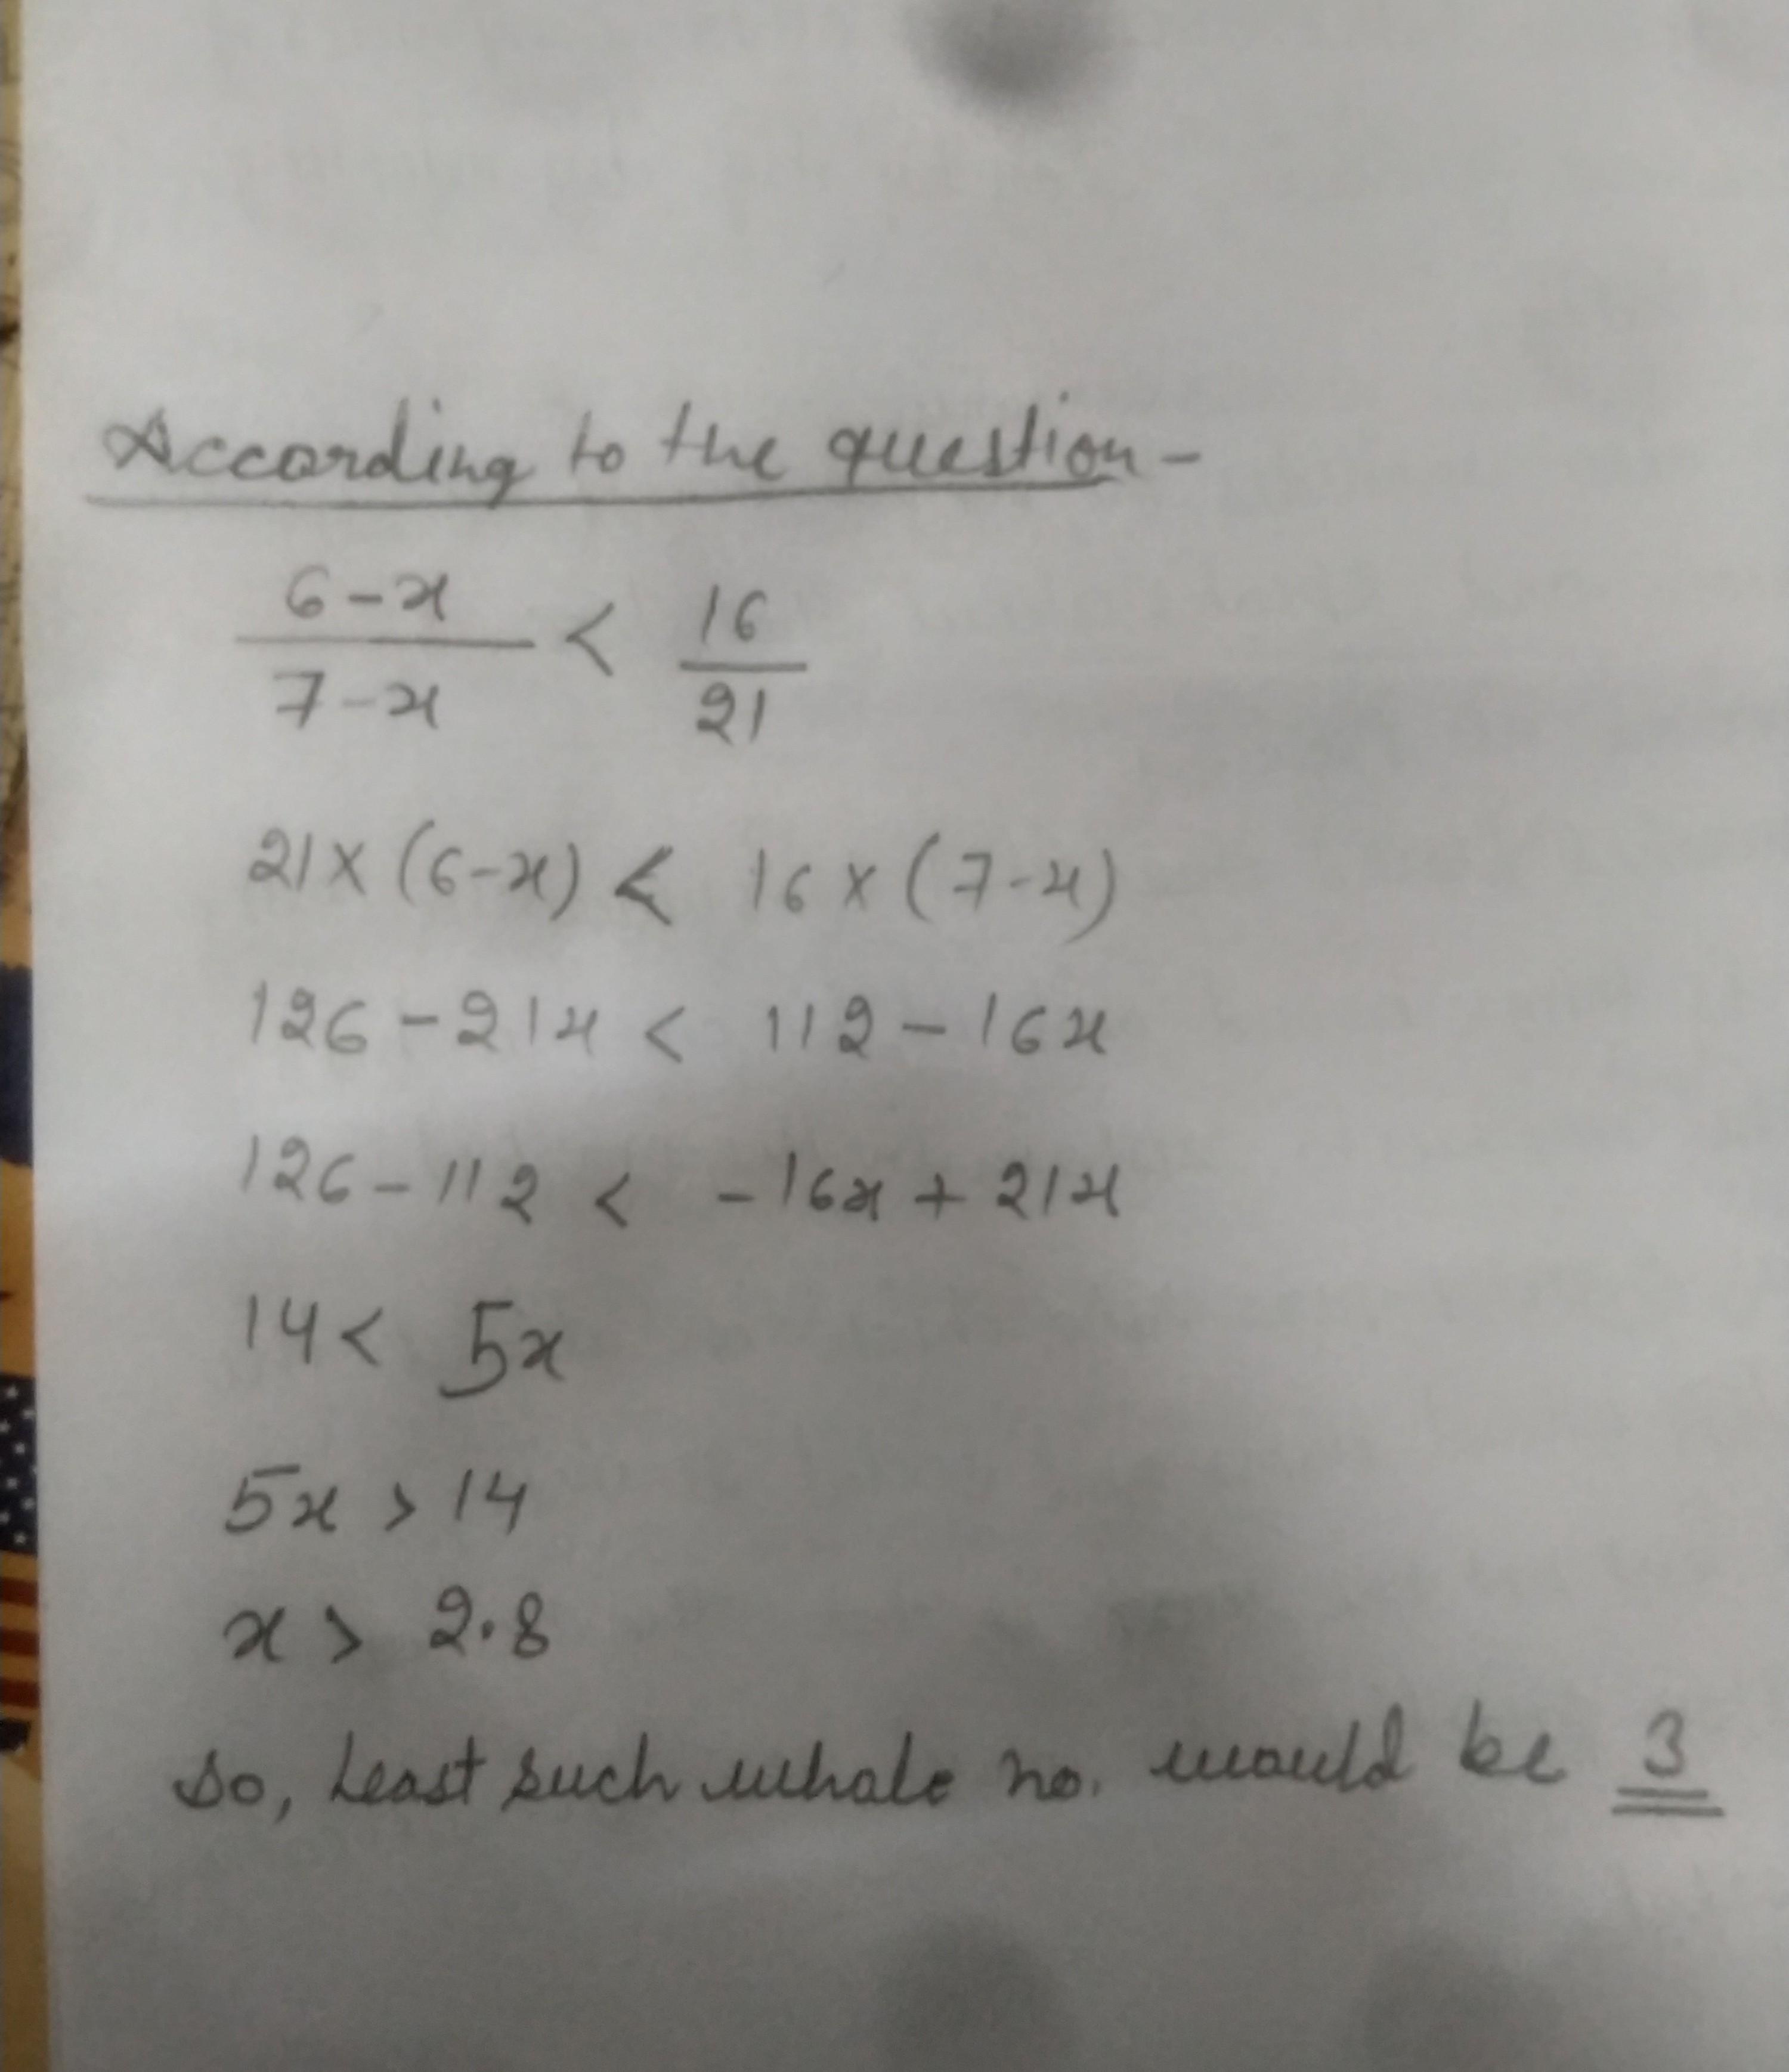 According to the question -
6-x / 7-x < 16 / 21
21 × (6-x) < 16 × (7-x)
126 - 21x < 112 - 16x
126 - 112 < - 16x + 21x
14 < 5x
5x > 14
x > 2.8
So, Least such whole no. would be 3